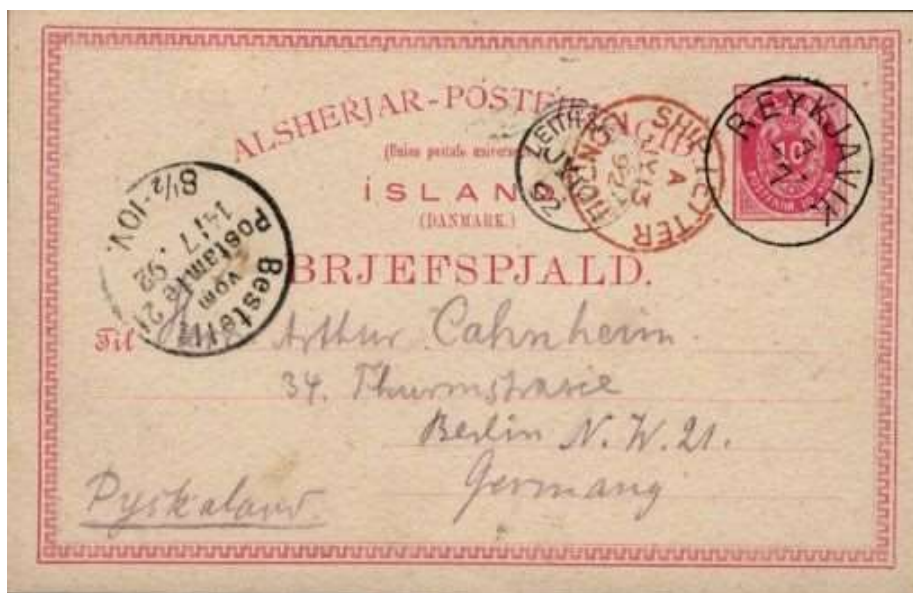 ALSHERJAR-PÓSTFJE
(Union postale universelle)
ÍSLAND
(DANMARK.)
BRJEFSPJALD.
REYKJAVIK
10
SHIP LETTER
A
JY 13
92
LEITH
Bestellt
vom
Postamte 21
14/7. 92
8½-10V.
Til Arthur Cahnheim
34. Thurmstrasse
Berlin N. W. 21.
Germany
Þyskaland